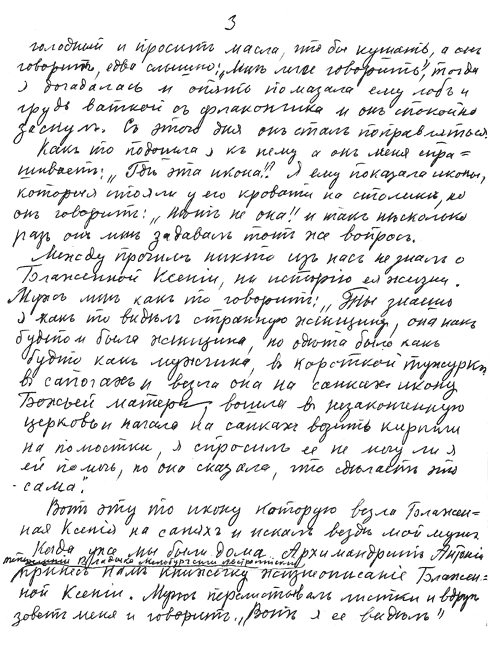 3
голодный и проситъ масла, что бы кушать, а онъ
говоритъ, едва слышно: „Мнѣ легче говорить", тогда
я догадалась и опять помазала ему лобъ и
грудь ваткой съ флакончика и онъ спокойно
заснулъ. Съ этого дня онъ сталъ поправляться.
Какъ то подошла я къ нему а онъ меня спра=
шиваетъ: „Гдѣ эта икона"? Я ему показала иконы,
которыя стояли у его кровати на столикѣ, но
онъ говоритъ: „Нѣтъ не она"! и такъ нѣсколько
разъ онъ мнѣ задавалъ тотъ же вопросъ.
Между прочимъ никто изъ насъ не зналъ о
Блаженной Ксеніи, ни исторію ея жизни.
Мужъ мнѣ какъ то говоритъ: „Ты знаешь
я какъ то видѣлъ странную женщину, она какъ
будто и была женщина, но одѣта была какъ
будто какъ мужчина, въ короткой тужуркѣ
въ сапогахъ и везла она на санкахъ икону
Божьей Матери, вошла въ незаконченную
церковь и начала на санкахъ возить кирпичи
на помостки, я спросилъ ее не могу ли я
ей помочь, но она сказала, что сдѣлаетъ это
сама".
Вотъ эту то икону которую везла Блажен=
ная Ксенія на саняхъ и искалъ вездѣ мой мужъ
Когда уже мы были дома, Архимандритъ Антоній
Владыка Мельбурнскій Австралійскій
принесъ намъ книжечку жизнеописаніе Блажен=
ной Ксеніи. Мужъ перелистывалъ листки и вдругъ
зоветъ меня и говоритъ „Вотъ я ее видѣлъ"